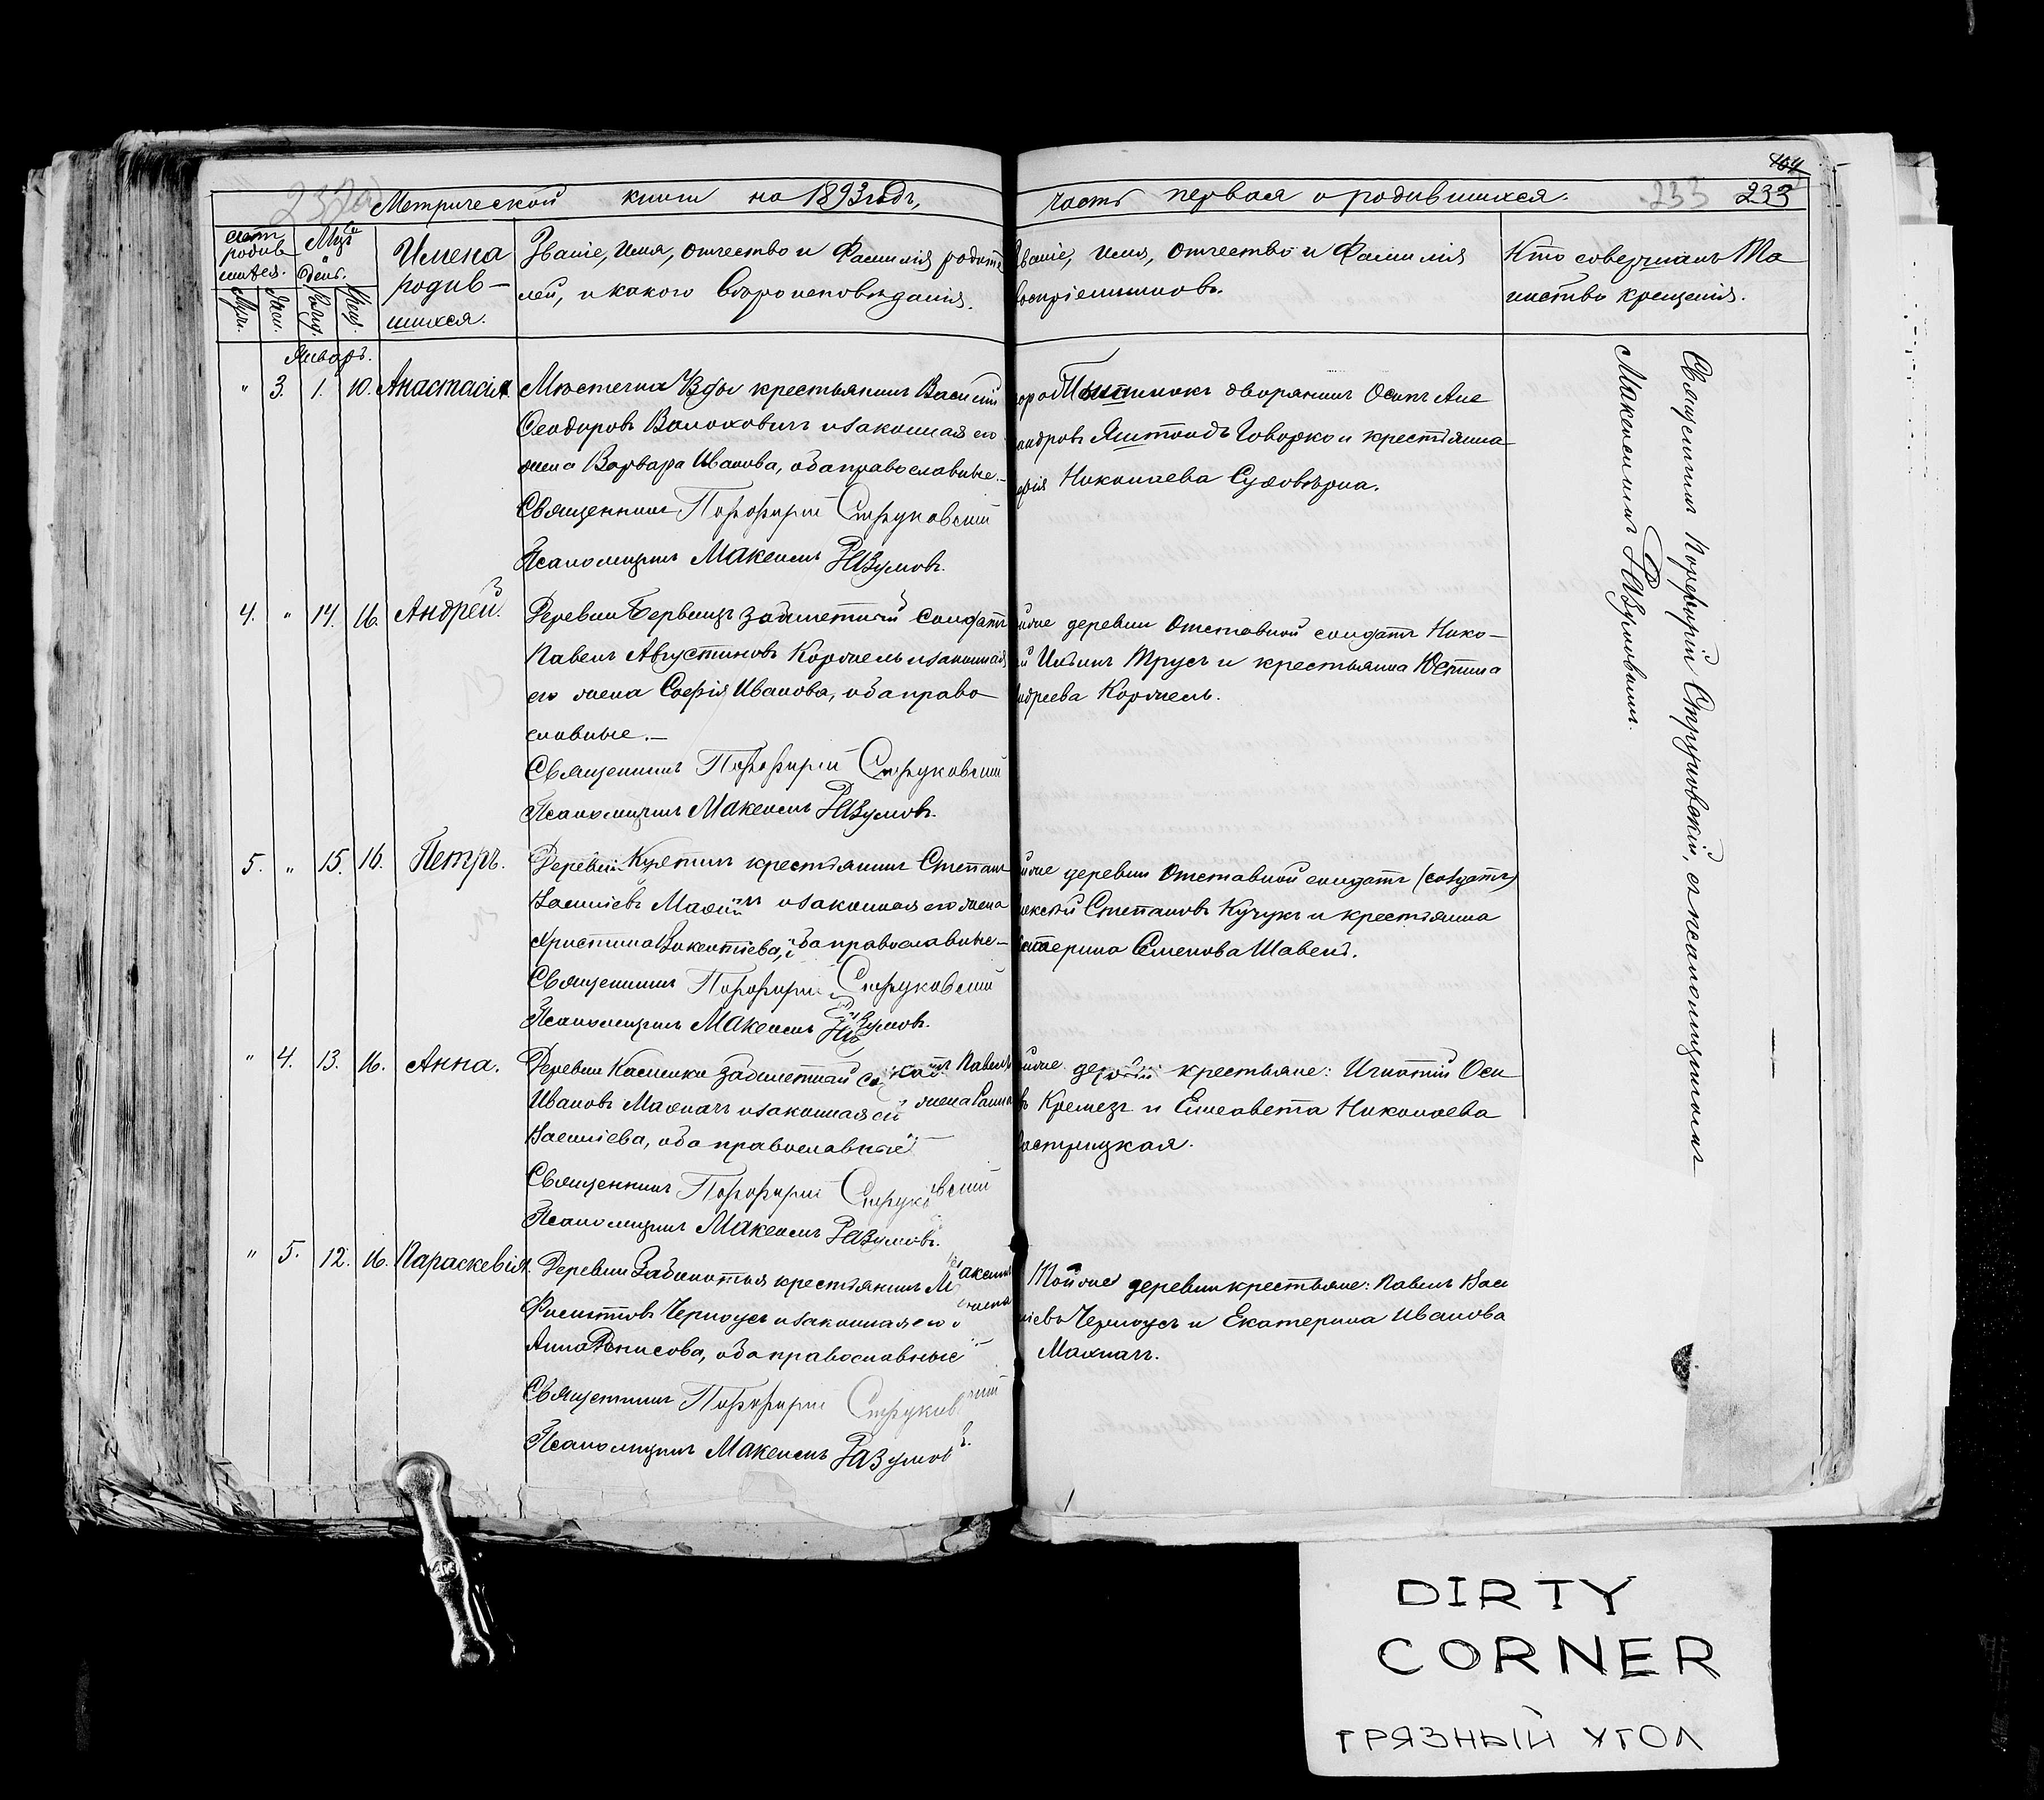 164
233 233
Метрической книги на 1893 годъ,
часть первая о родившихся.
Счетъ родив шихся.
Муж. Жен.
Мцъ и день.
Рожд. Крещ.
Имена родив- шихся.
Званіе, имя, отчество и Фамилія родите
лей, и какого вѣроисповѣданія.
Званіе, имя, отчество и Фамилія
воспріемниковъ.
Кто совершалъ Та
инство крещенія.
Январь.
" 3. 1. 10. Анастасія
Мѣстечка Узды крестьянинъ Василій
Ѳеодоровъ Волоховичъ и законная его
жена Варвара Иванова, оба православные.-
Священникъ Порфирій Струковскій
Псаломщикъ Максимъ Разумовъ.
дворянинъ Осипъ Але
ксандровъ Говорко и крестьянка
Николаева
4. " 14. 16. Андрей.
Деревни солдатъ
Павелъ Августиновъ Коржель и законная
его жена Софія Иванова, оба право-
славные.-
Священникъ Порфирій Струковскій
Псаломщикъ Максимъ Разумовъ.
деревни Отставной солдатъ Нико-
Ильинъ Трусъ и крестьянка Юстина
Андреева Коржель.
5. " 15. 16. Петръ.
Деревни Кухтичъ крестьянинъ Степанъ
Василіевъ и законная его жена
Христина Викентіева, оба православные.-
Священникъ Порфирій Струковскій
Псаломщикъ Максимъ Разумовъ.
деревни Отставной солдатъ (солдатъ)
Степановъ Кучукъ и крестьянка
Екатерина Семенова Шавель.
" 4. 13. 16. Анна.
Деревни Павелъ
Ивановъ Махначъ и законная его жена
Василіева, оба православные
Священникъ Порфирій Струковскій
Псаломщикъ Максимъ Разумовъ.
крестьяне: Игнатій Оси
въ Кремезъ и Елисавета Николаева
" 5. 12. 16. Параскевія.
Деревни Заболотья крестьянинъ Максимъ
Черноусъ и законная его жена
Анна Денисова, оба православные
Священникъ Порфирій Струковскій
Псаломщикъ Максимъ Разумовъ.
Той же деревни крестьяне: Павелъ Васи
ліевъ Черноусъ и Екатерина Иванова
Махначъ.
Священникъ Порфирій Струковскій, съ псаломщикомъ
Максимомъ Разумовымъ.
DIRTY
CORNER
ГРЯЗНЫЙ УГОЛ